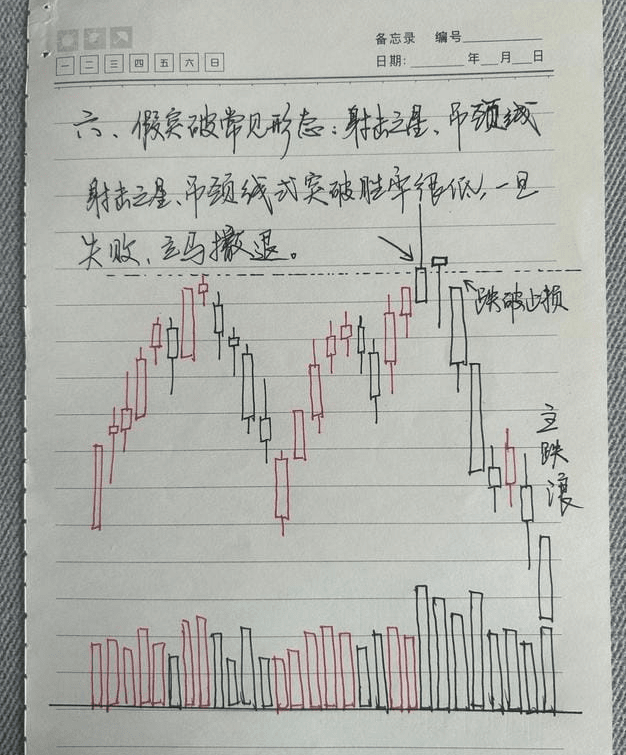 备忘录 编号
一 二 三 四 五 六 日
日期: 年 月 日
六、假突破常见形态：射击之星、吊颈线
射击之星、吊颈线式突破胜率很低，一旦
失败、立马撤退。
跌破止损
主跌浪